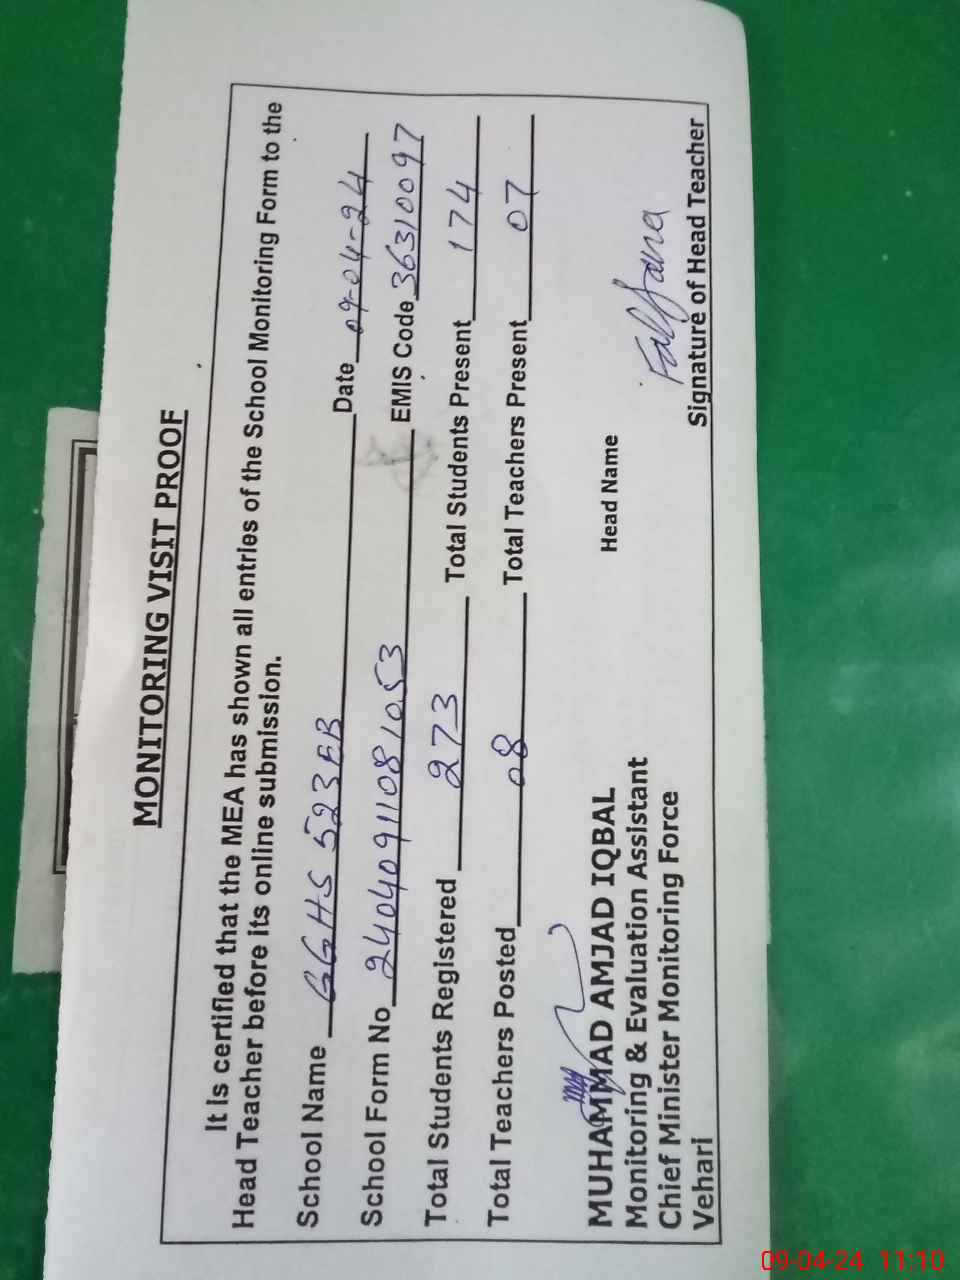 MONITORING VISIT PROOF
It is certified that the MEA has shown all entries of the School Monitoring Form to the
Head Teacher before its online submission.
School Name GGHS 523EB Date 09-04-24
School Form No 24040911081053 EMIS Code 36310097
Total Students Registered 273 Total Students Present 174
Total Teachers Posted 08 Total Teachers Present 07
MUHAMMAD AMJAD IQBAL Head Name
Monitoring & Evaluation Assistant
Chief Minister Monitoring Force
Vehari Signature of Head Teacher
09-04-24 11:10